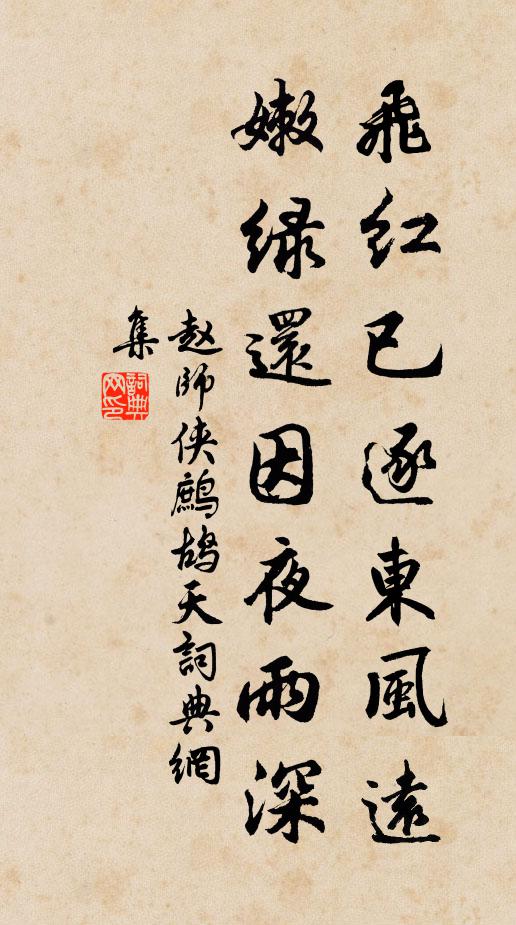 飛紅已逐東風遠
嫩緑還因夜雨深
赵師俠鷓鴣天詞典網
集
詞典
网印